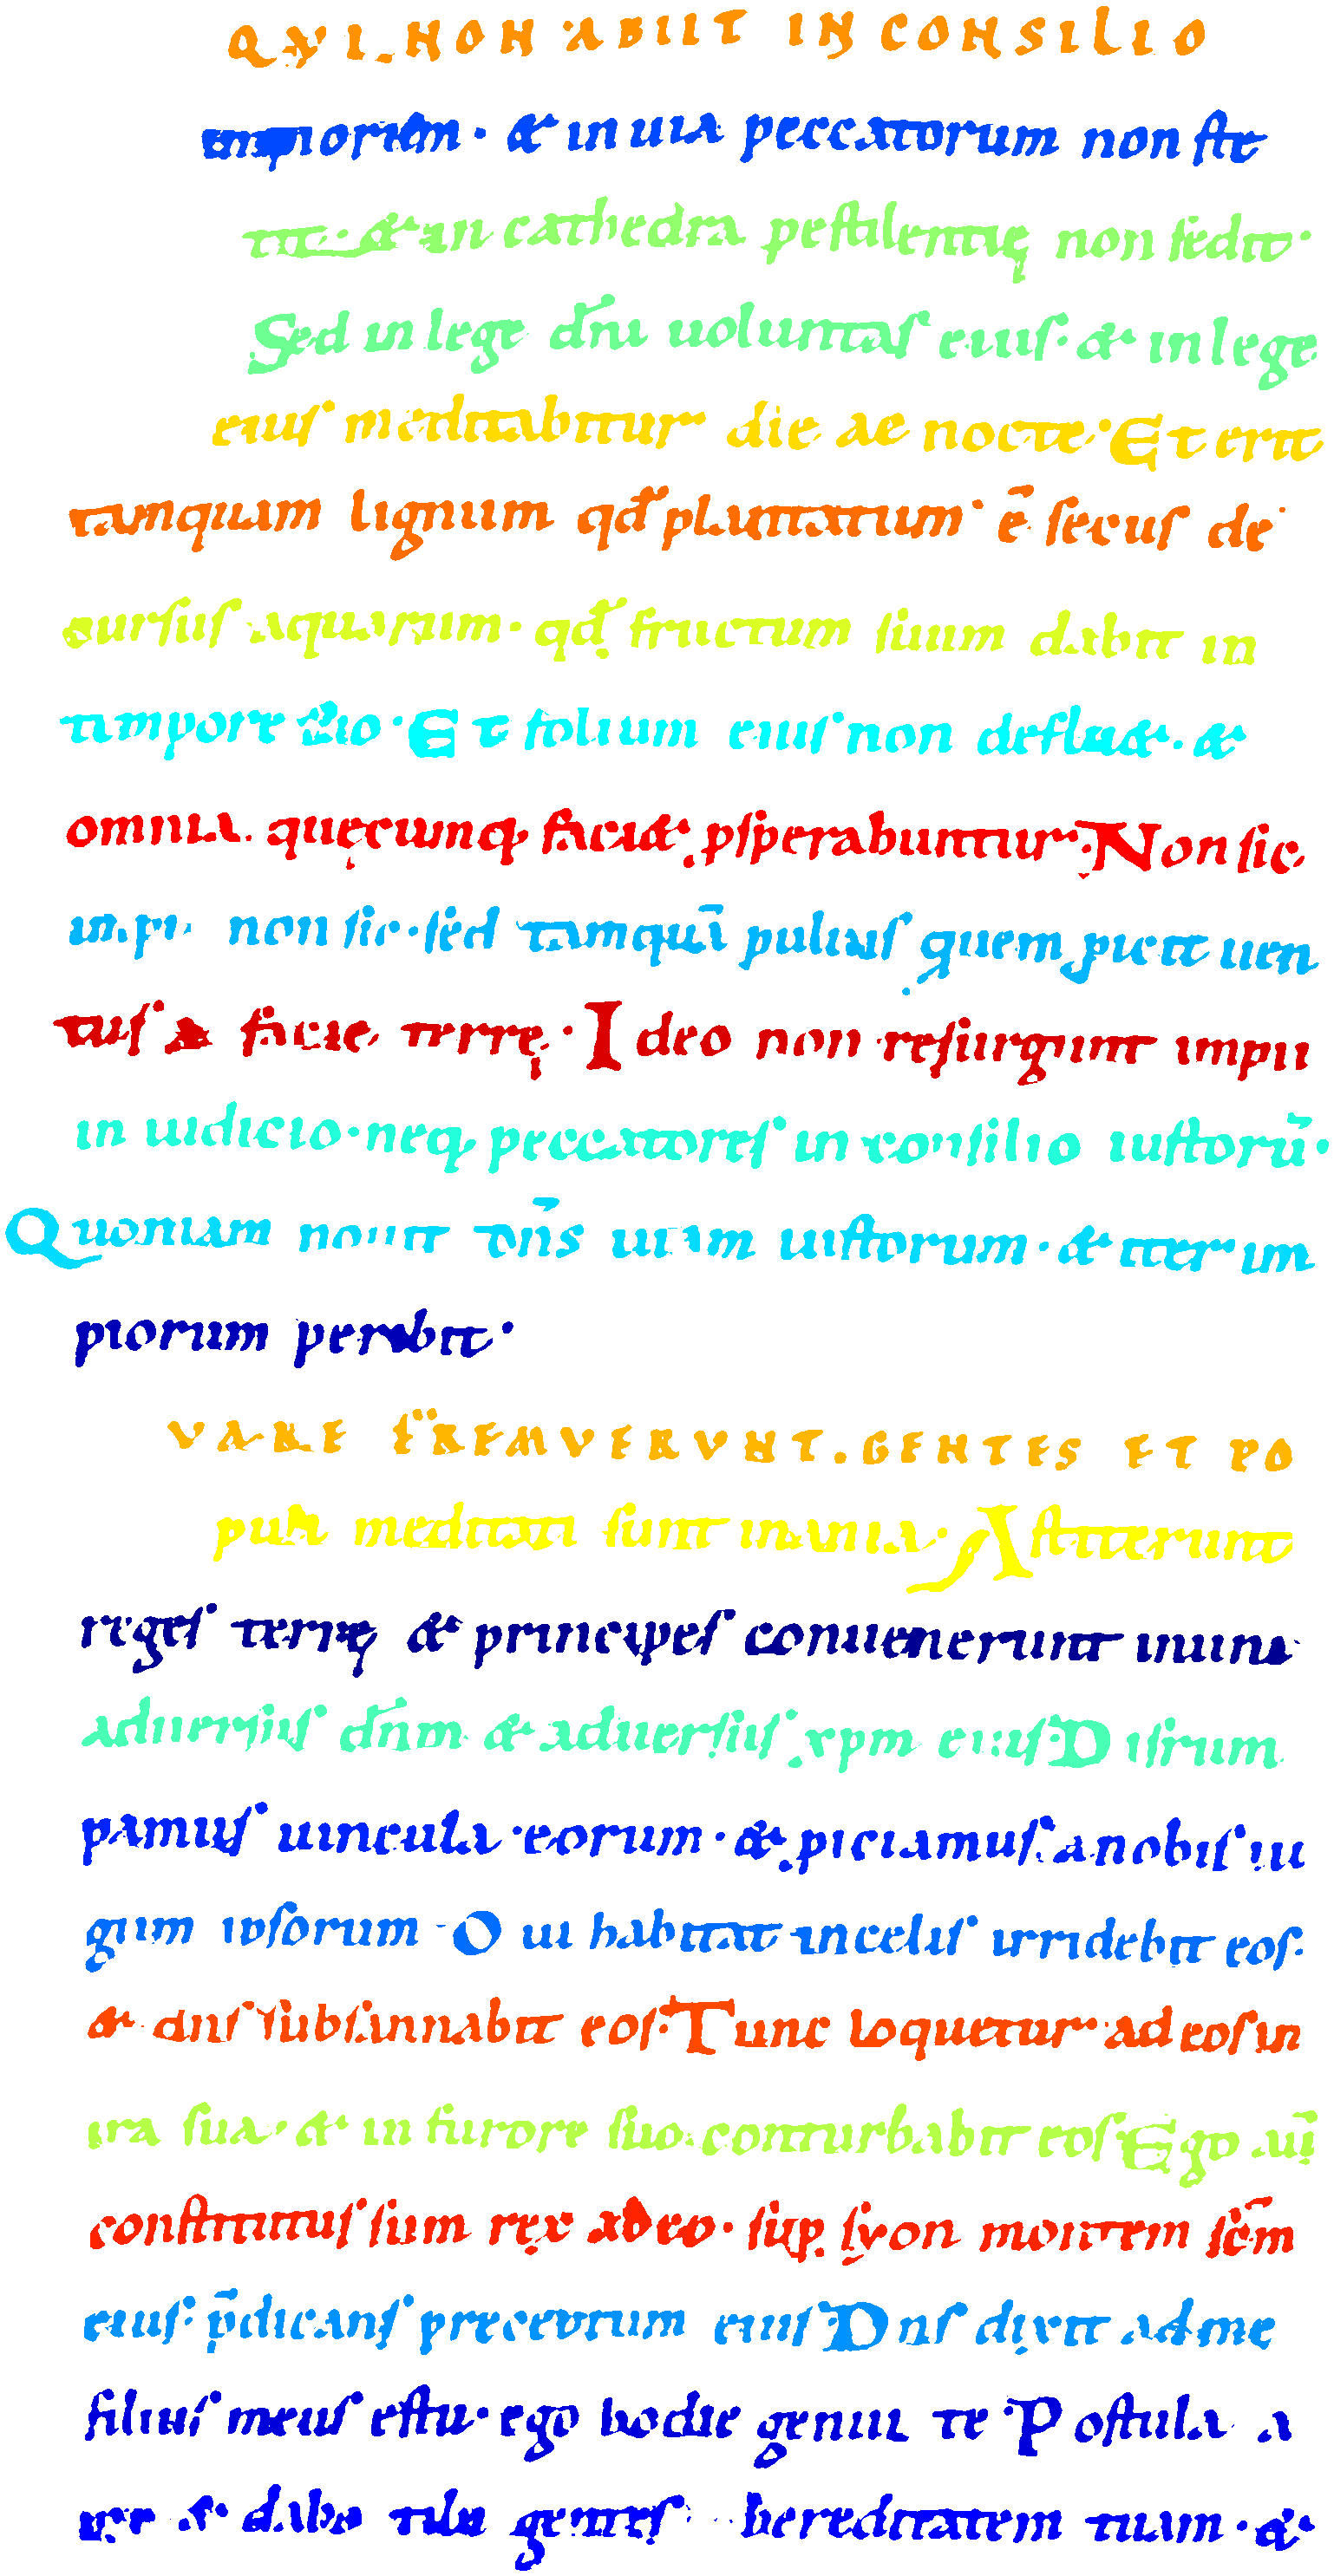 QVI NON ABIIT IN CONSILIO
impiorum · & in uia peccatorum non ste
tit · & in cathedra pestilentię non sedit ·
Sed in lege dn̄i uoluntas eius · & in lege
eius meditabitur die ac nocte · Et erit
tamquam lignum qđ plantatum ē secus de
cursus aquarum · qđ fructum suum dabit in
tempore suo · Et folium eius non defluet · &
omnia quęcumq; faciet psperabuntur · Non sic
impii non sic · sed tamquā puluis quem picit uen
tus a facie terrę · Ideo non resurgunt impii
in iudicio · neq; peccatores in consilio iustorū ·
Quoniam nouit dn̄s uiam iustorum · & iter im
piorum peribit ·
VARE FREMVERVNT · GENTES ET PO
puli meditati sunt inania · Astiterunt
reges terrę & principes conuenerunt in unū
aduersus dn̄m & aduersus xpm eius · Disrum
pamus uincula eorum · & piciamus a nobis iu
gum ipsorum · Qui habitat in celis irridebit eos ·
& dn̄s subsannabit eos · Tunc loquetur ad eos in
ira sua · & in furore suo conturbabit eos Ego aūt
constitutus sum rex ab eo · sup syon montem scm̄
eius · p̄dicans preceptum eius Dns dixit ad me
filius meus es tu · ego hodie genui te · Postula a
me & dabo tibi gentes hereditatem tuam · &